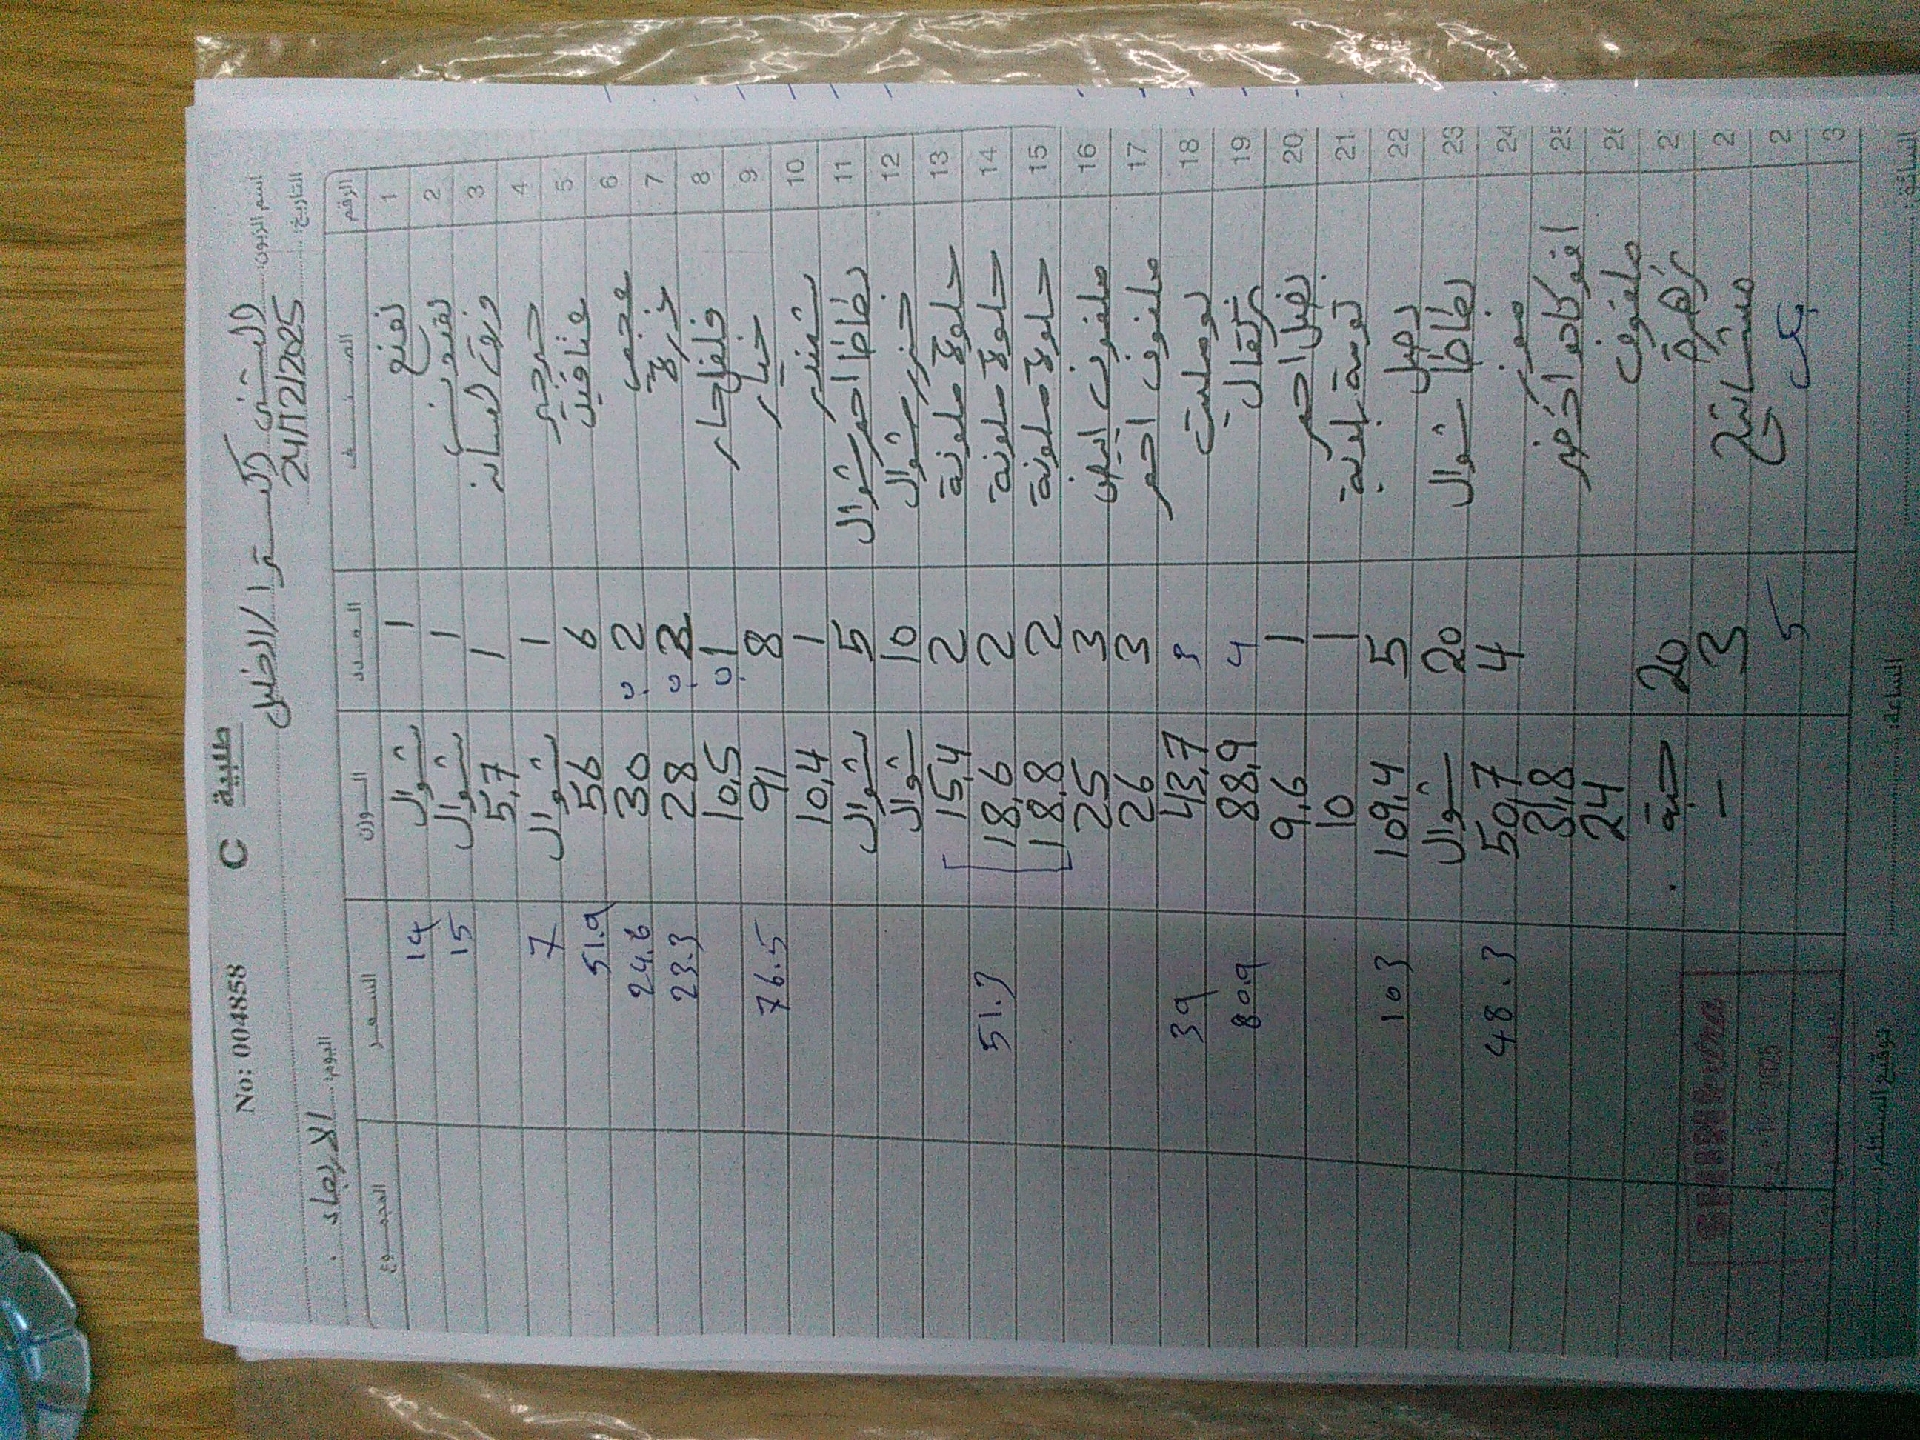 No: 004858 C طلبية
اسم الزبون: البستنجي اكسترا/الخليل
التاريخ: 24/12/2025 اليوم: الاربعاء
الرقم الصنف العدد الوزن السعر المجموع
1 نعنع 1 شوال 14
2 بقدونس 1 شوال 15
3 ورق لسانة 1 5,7
4 جرجير 1 شوال 7
5 عناقيد 6 56 51.9
6 عجمي 2 30 24.6
7 خزرة 2 28 23.3
8 فلفل حار 1 10,5
9 خيار 8 91 76.5
10 شمندر 1 10,4
11 بطاطا احمر شوال 5 شوال
12 جزر شوال 10 شوال
13 حلوة ملونة 2 15,4
14 حلوة ملونة 2 18,6 51.3
15 حلوة ملونة 2 18,8
16 ملفوف ابيض 3 25
17 ملفوف احمر 3 26
18 بوملي 3 43,7 39
19 برتقال 4 88,9 80.9
20 بصل احمر 1 9,6
21 ثومة بلدية 1 10
22 بصل 5 109,4 103
23 بطاطا شوال 20 شوال
24 موز 4 50,7 48.3
25 افوكادو اخضر 31,8
ملفوف 24
زهرة 20 حبة
مشاتيح 3 -
5
الساعة:
توقيع المستلم: